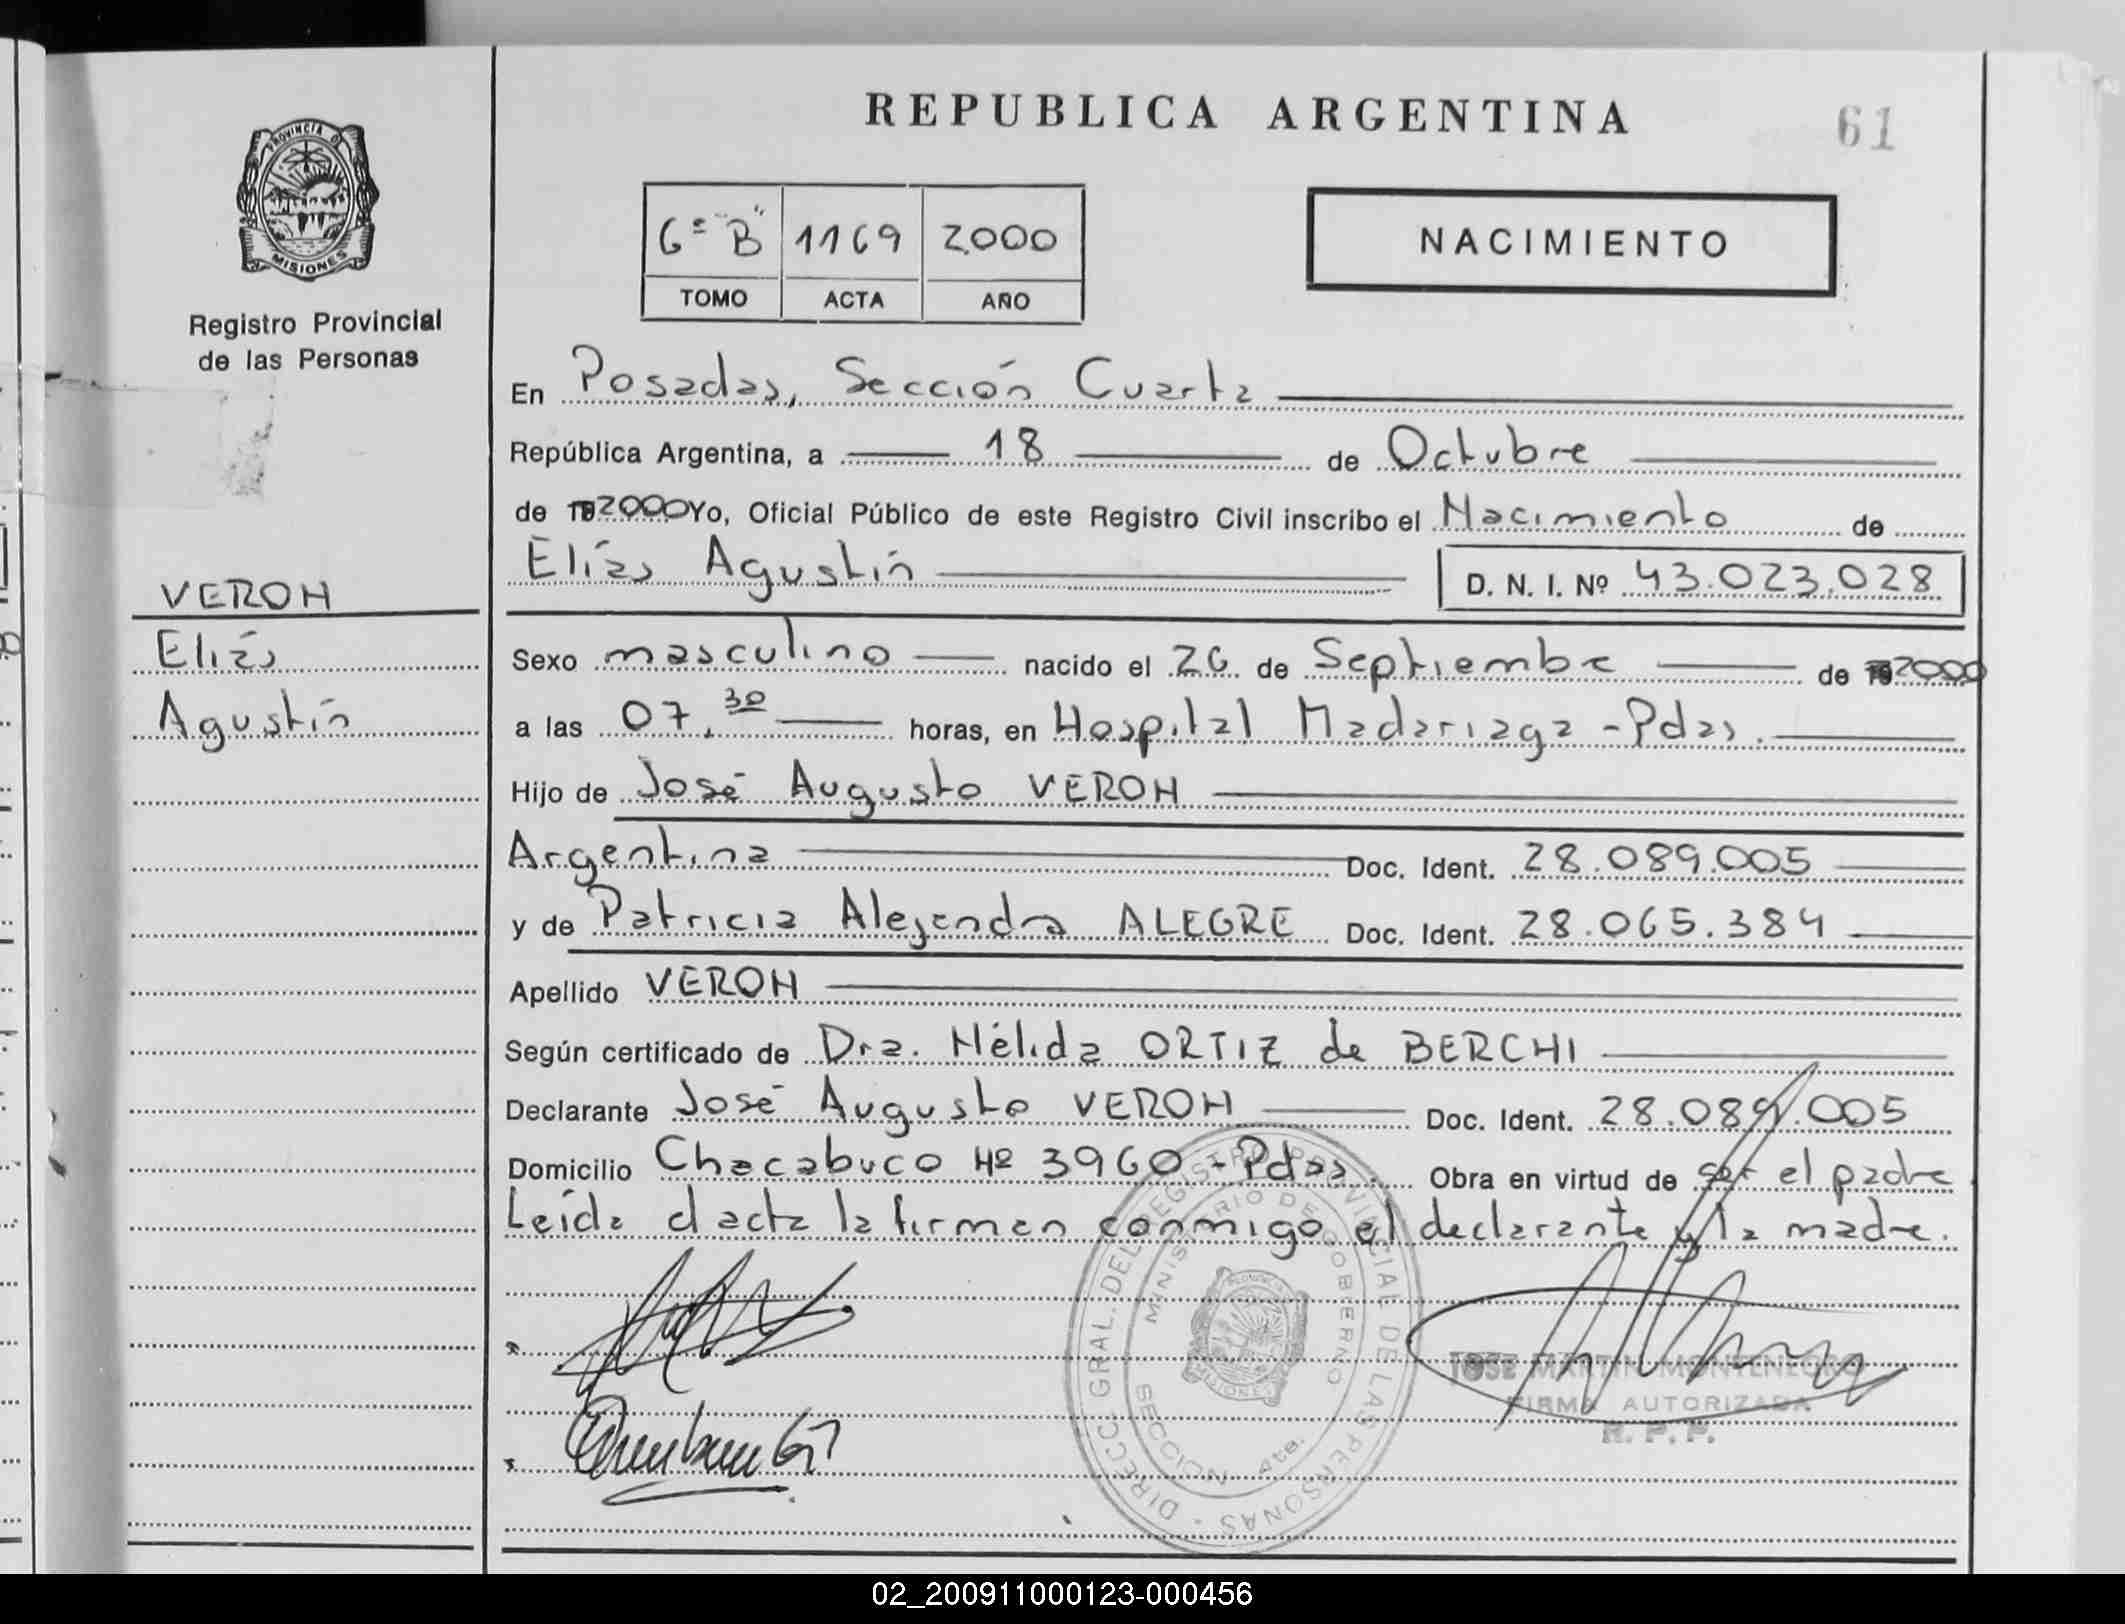 REPUBLICA ARGENTINA
61
PROVINCIA DE
MISIONES
Registro Provincial
de las Personas
6º "B" 1169 2000
TOMO ACTA AÑO
NACIMIENTO
En Posadas, Sección Cuarta
República Argentina, a 18 de Octubre
de 192000 Yo, Oficial Público de este Registro Civil inscribo el Nacimiento de
Elías Agustín D. N. I. Nº 43.023.028
VERON
Elías
Agustín
Sexo masculino nacido el 26 de Septiembre de 192000
a las 07,30 horas, en Hospital Madariaga - Pdas.
Hijo de José Augusto VERON
Argentina Doc. Ident. 28.089.005
y de Patricia Alejandra ALEGRE Doc. Ident. 28.065.384
Apellido VERON
Según certificado de Dra. Nélida ORTIZ de BERCHI
Declarante José Augusto VERON Doc. Ident. 28.089.005
Domicilio Chacabuco Nº 3960 - Pdas. Obra en virtud de ser el padre
Leída el acta la firman conmigo el declarante y la madre.
DIRECC. GRAL. DEL REGISTRO PROVINCIAL DE LAS PERSONAS
MINISTERIO DE GOBIERNO
SECCION 4ta.
JOSE MARTIN MONTENEGRO
FIRMA AUTORIZADA
R. P. P.
02_200911000123-000456